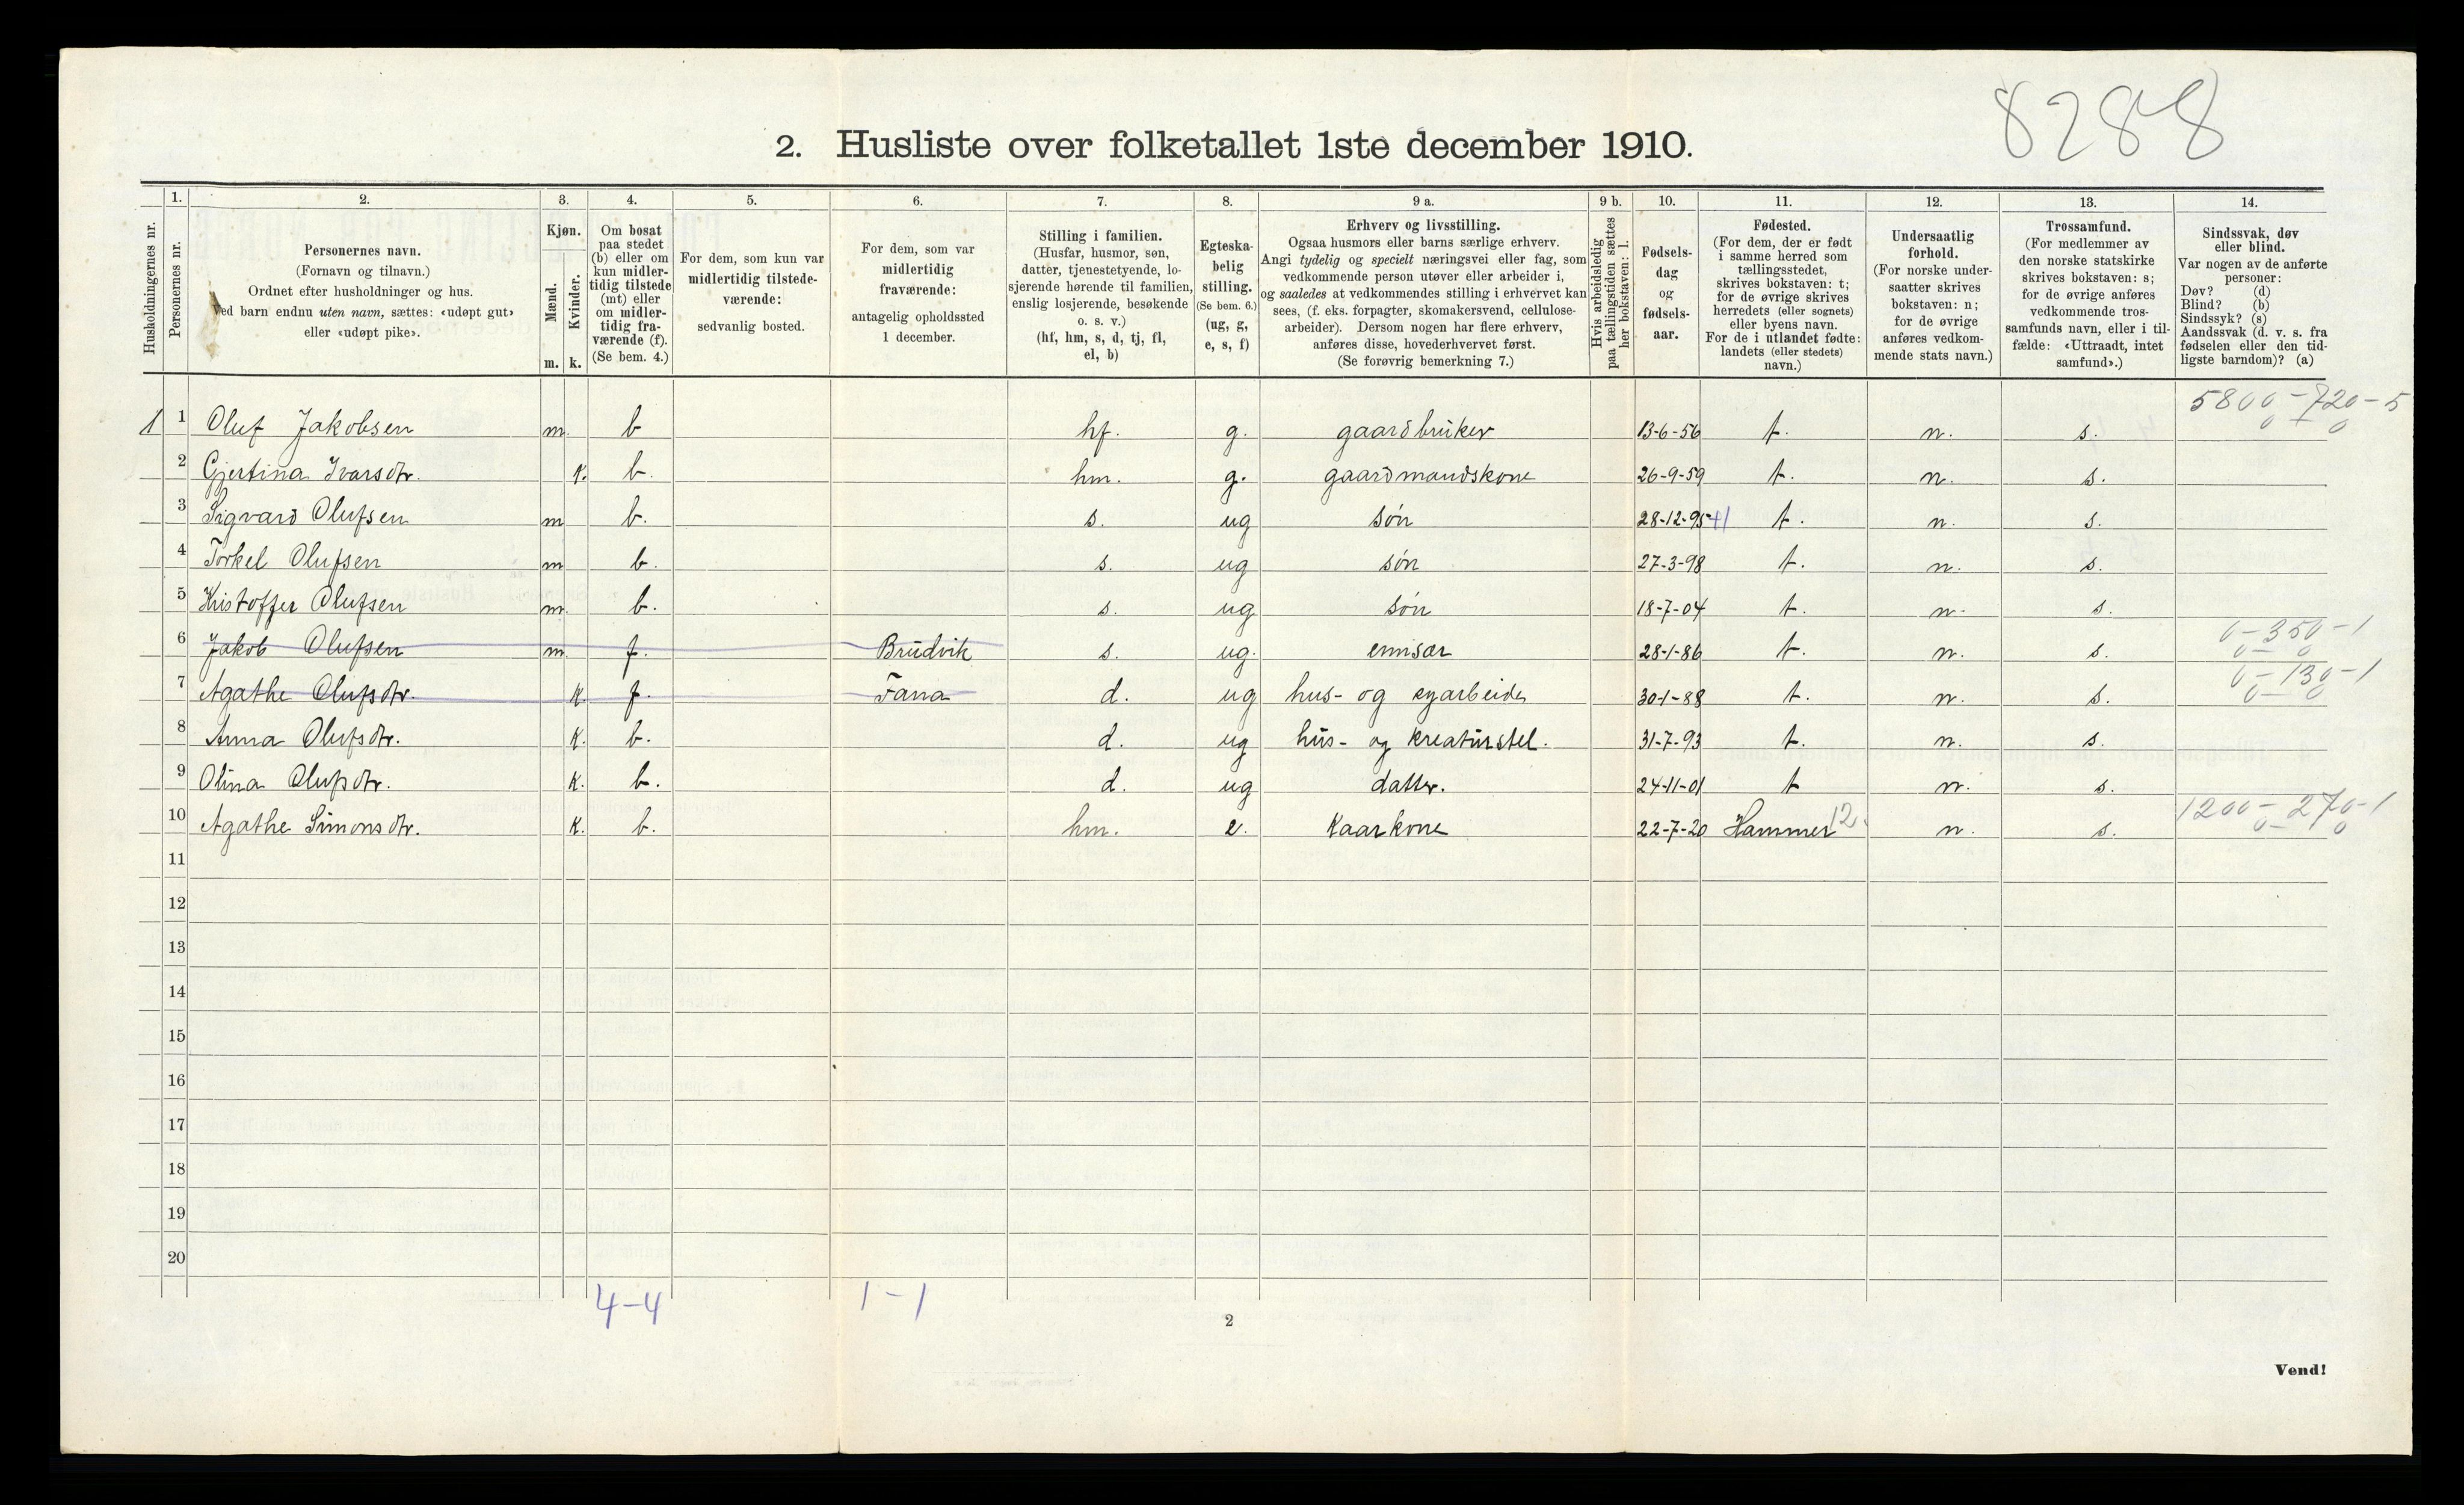 8288
2. Husliste over folketallet 1ste december 1910.
Husholdningernes nr.
1.
Personernes nr.
2.
Personernes navn.
(Fornavn og tilnavn.)
Ordnet efter husholdninger og hus.
Ved barn endnu uten navn, sættes: «udøpt gut»
eller «udøpt pike».
3.
Kjøn.
Mænd.
Kvinder.
m. k.
4.
Om bosat
paa stedet
(b) eller om
kun midler-
tidig tilstede
(mt) eller
om midler-
tidig fra-
værende (f).
(Se bem. 4.)
5.
For dem, som kun var
midlertidig tilstede-
værende:
sedvanlig bosted.
6.
For dem, som var
midlertidig
fraværende:
antagelig opholdssted
1 december.
7.
Stilling i familien.
(Husfar, husmor, søn,
datter, tjenestetyende, lo-
sjerende hørende til familien,
enslig losjerende, besøkende
o. s. v.)
(hf, hm, s, d, tj, fl,
el, b)
8.
Egteska-
belig
stilling.
(Se bem. 6.)
(ug, g,
e, s, f)
9 a.
Erhverv og livsstilling.
Ogsaa husmors eller barns særlige erhverv.
Angi tydelig og specielt næringsvei eller fag, som
vedkommende person utøver eller arbeider i,
og saaledes at vedkommendes stilling i erhvervet kan
sees, (f. eks. forpagter, skomakersvend, cellulose-
arbeider). Dersom nogen har flere erhverv,
anføres disse, hovederhvervet først.
(Se forøvrig bemerkning 7.)
9 b.
Hvis arbeidsledig
paa tællingstiden sættes
her bokstaven: l.
10.
Fødsels-
dag
og
fødsels-
aar.
11.
Fødested.
(For dem, der er født
i samme herred som
tællingsstedet,
skrives bokstaven: t;
for de øvrige skrives
herredets (eller sognets)
eller byens navn.
For de i utlandet fødte:
landets (eller stedets)
navn.)
12.
Undersaatlig
forhold.
(For norske under-
saatter skrives
bokstaven: n;
for de øvrige
anføres vedkom-
mende stats navn.)
13.
Trossamfund.
(For medlemmer av
den norske statskirke
skrives bokstaven: s;
for de øvrige anføres
vedkommende tros-
samfunds navn, eller i til-
fælde: «Uttraadt, intet
samfund».)
14.
Sindssvak, døv
eller blind.
Var nogen av de anførte
personer:
Døv? (d)
Blind? (b)
Sindssyk? (s)
Aandssvak (d. v. s. fra
fødselen eller den tid-
ligste barndom)? (a)
5800 - 720 - 5
0 - 0
1 1 Oluf Jakobsen m. b hf. g. gaardbruker 13-6-56 t. n. s.
2 Gjertina Ivarsdtr. k. b. hm. g. gaardmandskone 26-9-59 t. n. s.
3 Sigvard Olufsen m b. s. ug søn 28-12-95 t. n. s.
4 Torkel Olufsen m b. s. ug søn 27-3-98 t. n. s.
5 Kristoffer Olufsen m. b. s. ug søn 18-7-04 t. n. s.
0 - 350 - 1
6 Jakob Olufsen m. f. Brudvik s. ug. emisær 28-1-86 t. n. s. 0 - 0
0 - 130 - 1
7 Agathe Olufsdtr. k. f. Fana d. ug hus- og syarbeide 30-1-88 t. n. s. 0 - 0
8 Anna Olufsdtr. k. b. d. ug hus- og kreaturstel. 31-7-93 t. n. s.
9 Olina Olufsdtr. k. b. d. ug datter. 24-11-01 t n. s.
1200 - 270 - 1
10 Agathe Simonsdtr. k. b. hm. e. Kaarkone 22-7-20 Hammer 12. n. s. 0 - 0
11
12
13
14
15
16
17
18
19
20
4-4 1-1
2
Vend!